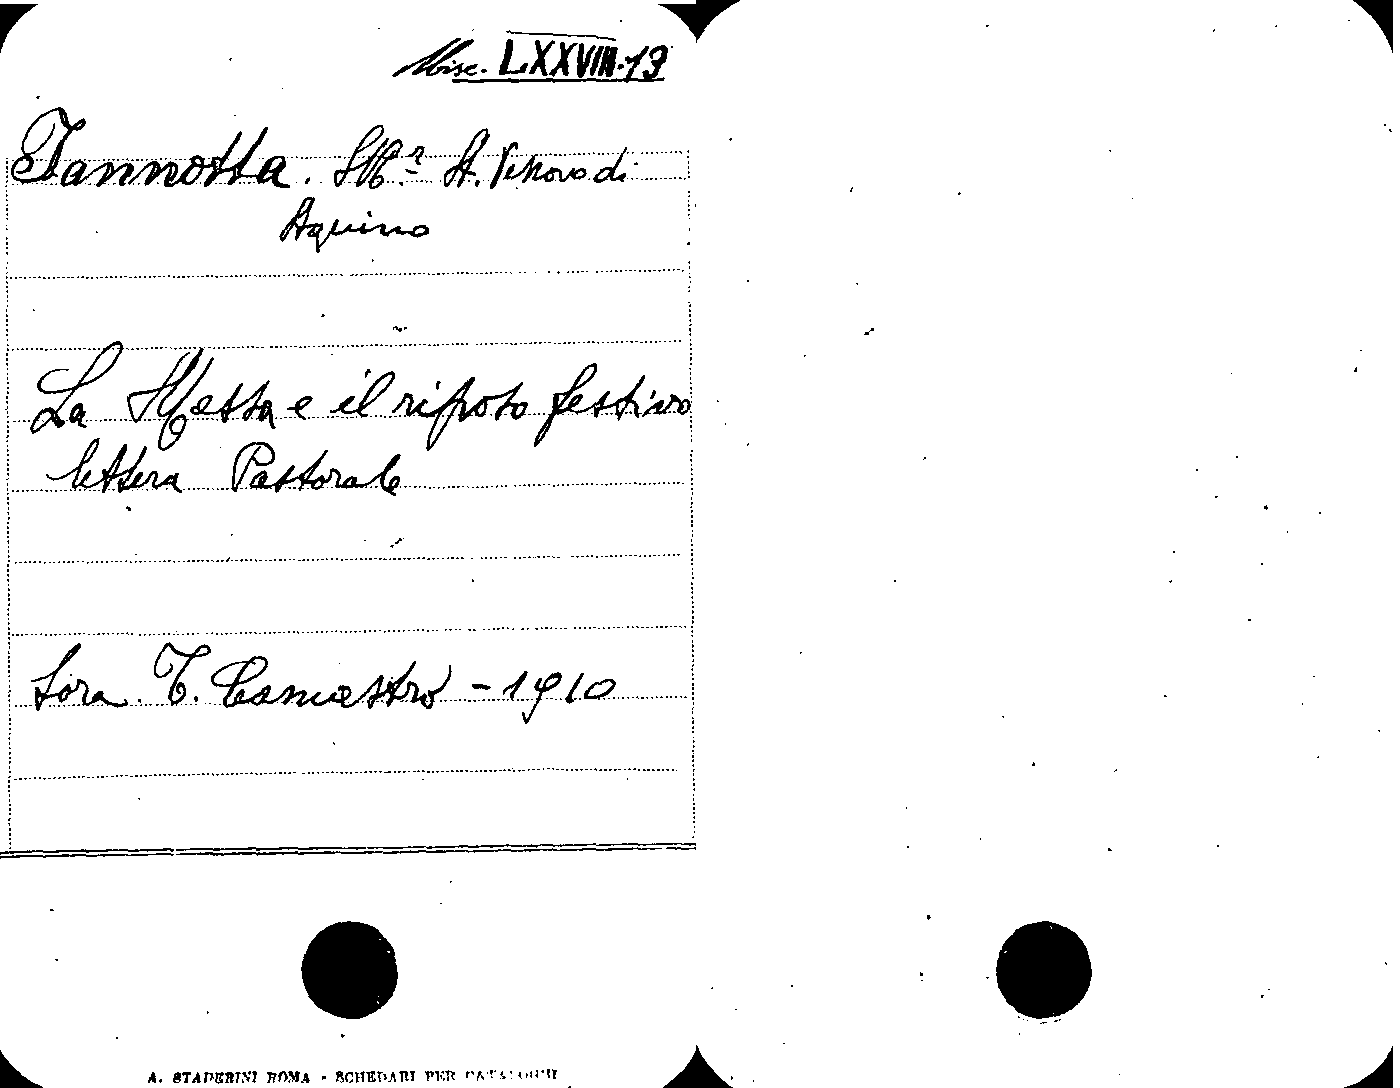 Misc. LXXVIII.13
Iannotta. Mr. A. Vescovo di
Aquino
La Messa e il riposo festivo
lettera Pastorale
Sora. T. Camastro - 1910
A. STADERINI ROMA - SCHEDARI PER CATALOGHI